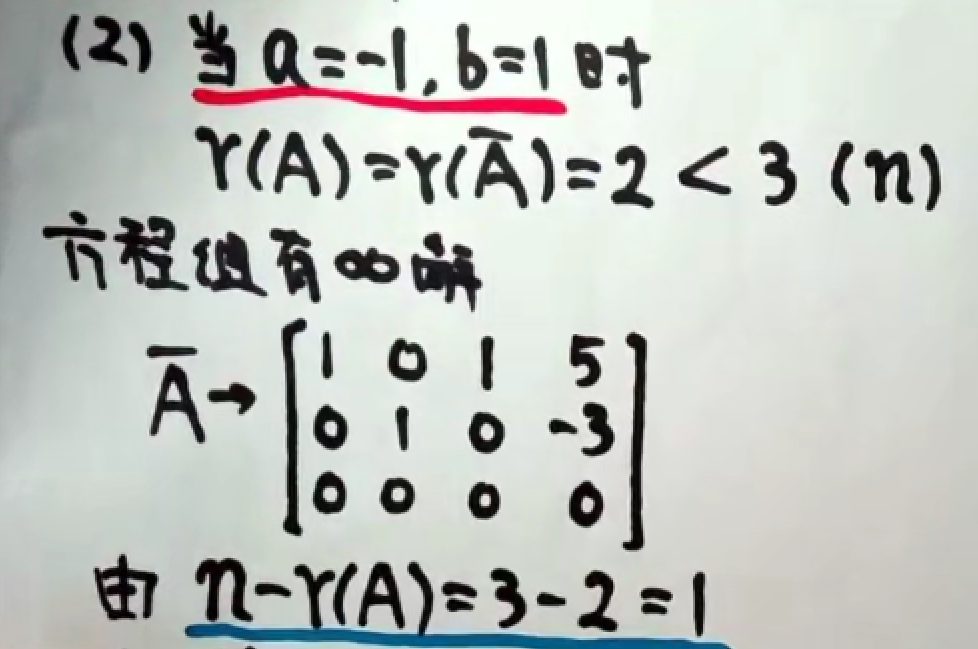 (2) 当 a=-1, b=1 时
r(A)=r(A̅)=2<3 (n)
方程组有∞解
A̅→
1 0 1 5
0 1 0 -3
0 0 0 0
由 n-r(A)=3-2=1